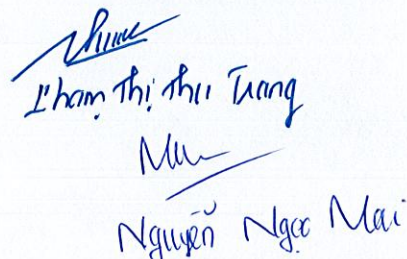 Phạm Thị Thu Trang
Nguyễn Ngọc Mai